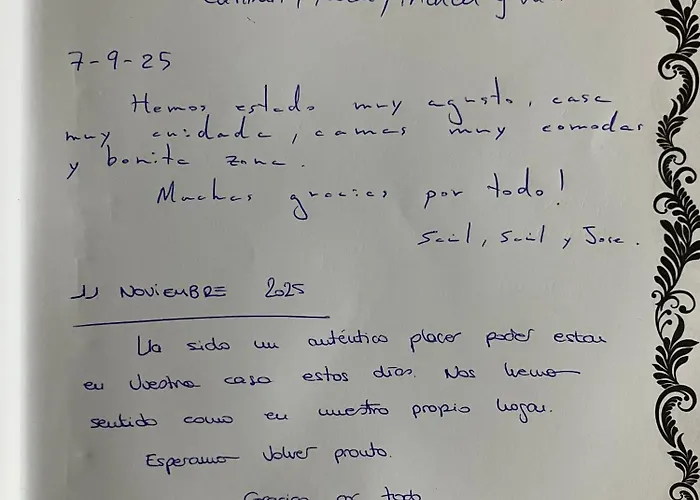 7-9-25
Hemos estado muy agusto, casa
muy cuidada, camas muy comodas
y bonita zona.
Muchas gracias por todo!
Saúl, Saúl y Jose.
11 NOVIEMBRE 2025
Ha sido un auténtico placer poder estar
en vuestra casa estos días. Nos hemos
sentido como en nuestro propio hogar.
Esperamos volver pronto.
Gracias por todo